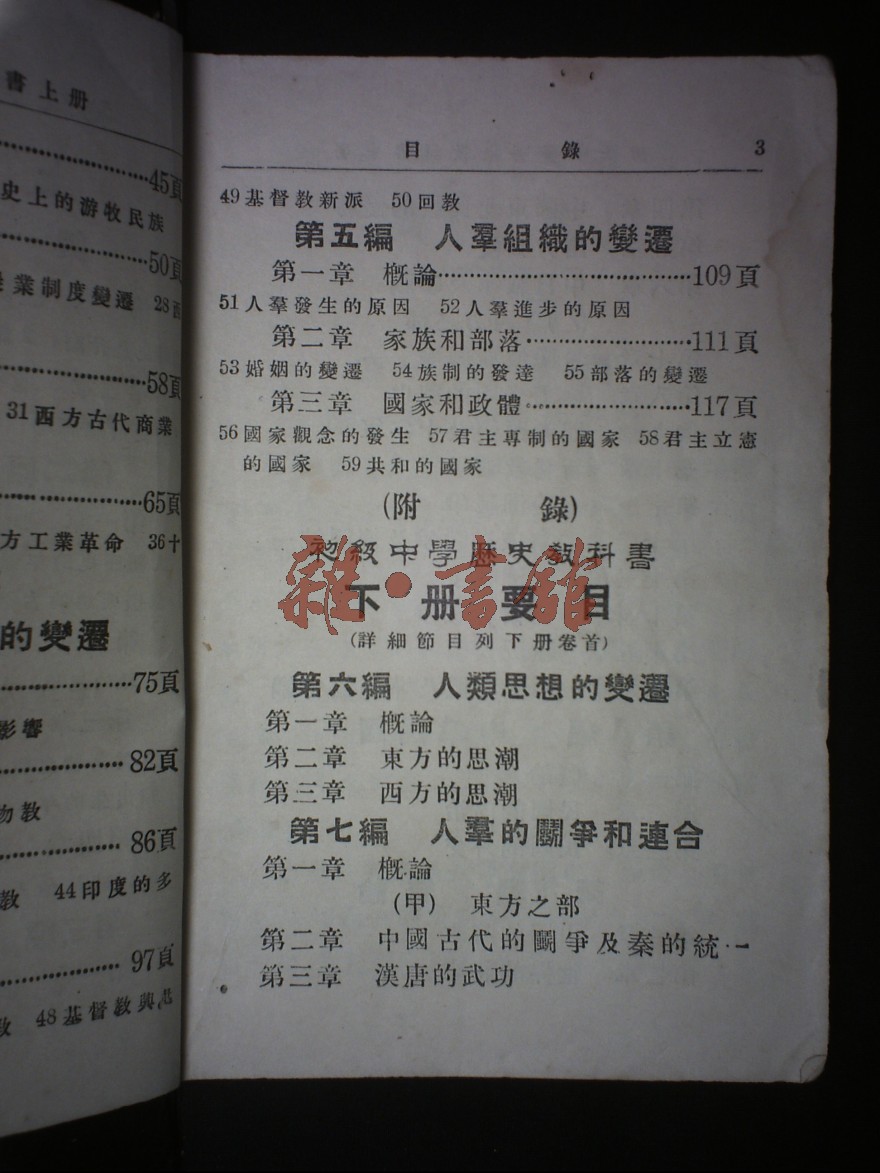 書上册
45頁
史上的游牧民族
50頁
業制度變遷 28西
58頁
31西方古代商業
65頁
方工業革命 36十
的變遷
75頁
影響
82頁
物教
86頁
教 44印度的多
97頁
教 48基督教興起
目 錄 3
49基督教新派 50回教
第五編 人羣組織的變遷
第一章 概論……109頁
51人羣發生的原因 52人羣進步的原因
第二章 家族和部落……111頁
53婚姻的變遷 54族制的發達 55部落的變遷
第三章 國家和政體……117頁
56國家觀念的發生 57君主專制的國家 58君主立憲
的國家 59共和的國家
(附 錄)
初級中學歷史教科書
下册要目
雜·書館
(詳細節目列下册卷首)
第六編 人類思想的變遷
第一章 概論
第二章 東方的思潮
第三章 西方的思潮
第七編 人羣的鬭爭和連合
第一章 概論
(甲) 東方之部
第二章 中國古代的鬭爭及秦的統一
第三章 漢唐的武功